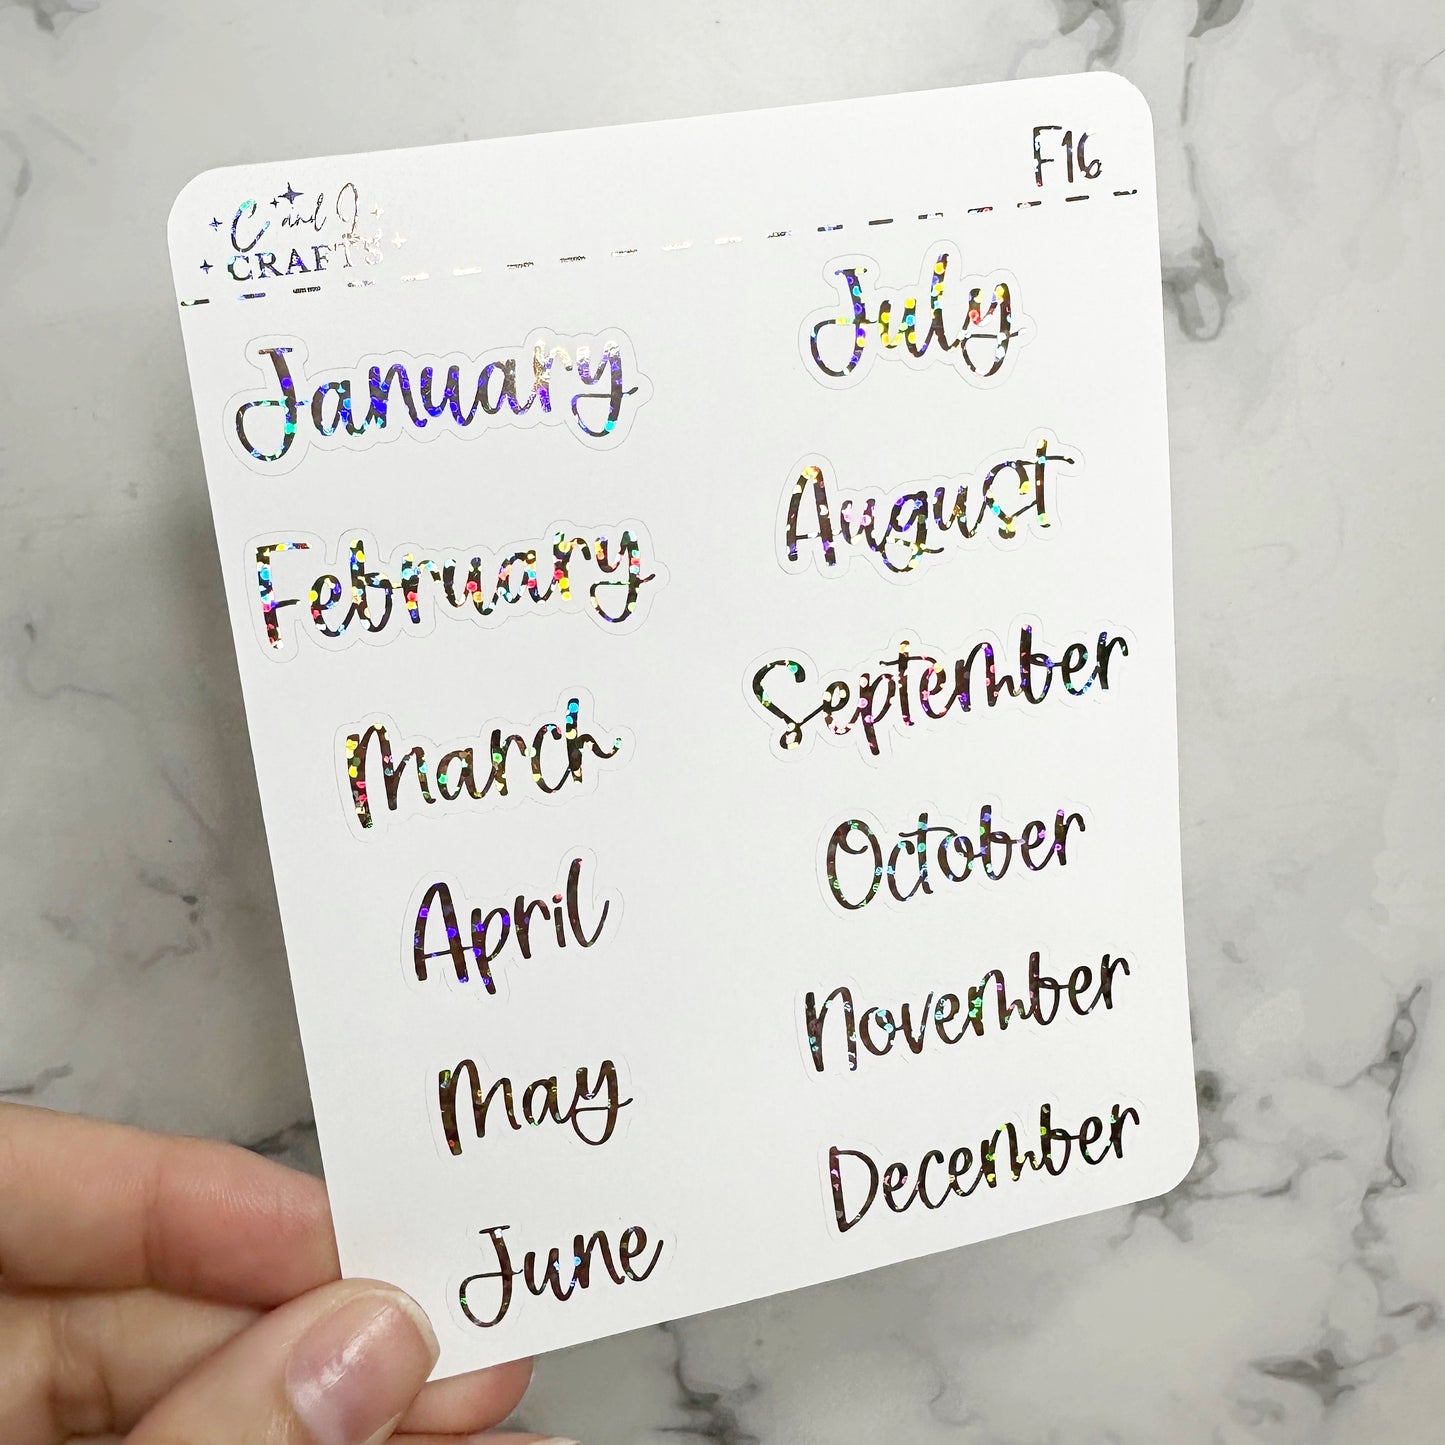 C and J
CRAFTS
F16
January
February
March
April
May
June
July
August
September
October
November
December